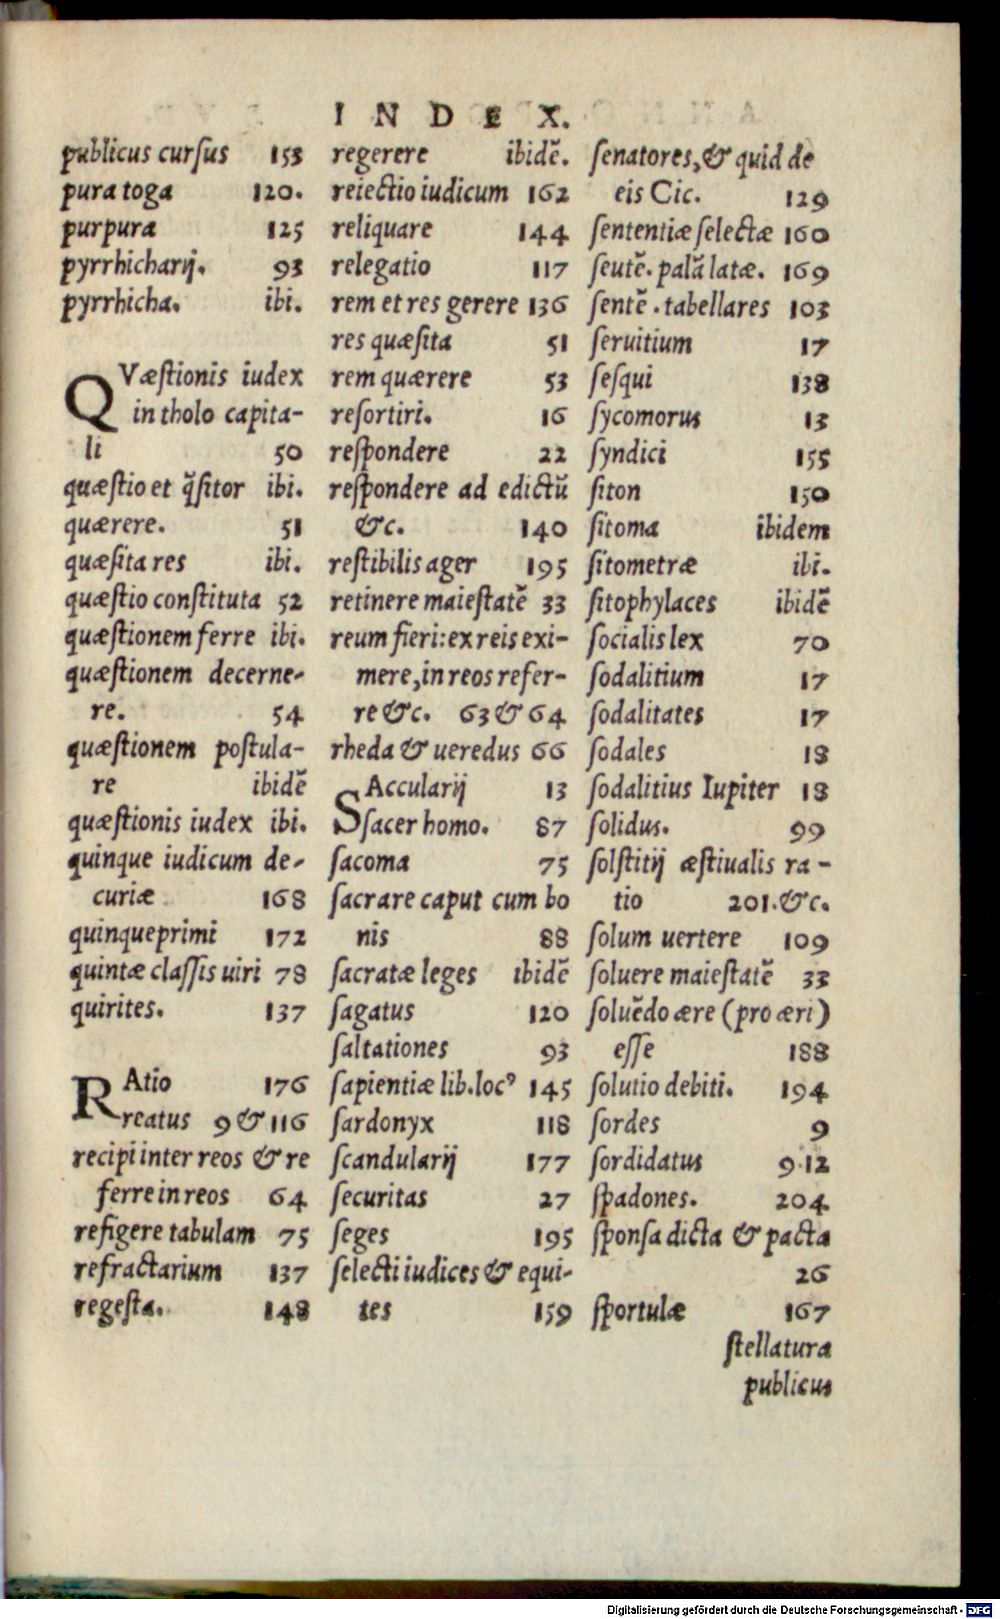 INDEX.
publicus curſus 153
pura toga 120.
purpura 125
pyrrhicharij. 93
pyrrhicha. ibi.
QVæſtionis iudex
in tholo capita-
li 50
quæſtio et q̃ſitor ibi.
quærere. 51
quæſita res ibi.
quæſtio conſtituta 52
quæſtionem ferre ibi.
quæſtionem decerne-
re. 54
quæſtionem poſtula-
re ibidẽ
quæſtionis iudex ibi.
quinque iudicum de-
curiæ 168
quinqueprimi 172
quintæ claſſis uiri 78
quirites. 137
RAtio 176
reatus 9 & 116
recipi inter reos & re
ferre in reos 64
refigere tabulam 75
refractarium 137
regeſta. 148
regerere ibidẽ.
reiectio iudicum 162
reliquare 144
relegatio 117
rem et res gerere 136
res quæſita 51
rem quærere 53
reſortiri. 16
reſpondere 22
reſpondere ad edictũ
&c. 140
reſtibilis ager 195
retinere maieſtatẽ 33
reum fieri: ex reis exi-
mere, in reos refer-
re &c. 63 & 64
rheda & ueredus 66
SAccularij 13
ſacer homo. 87
ſacoma 75
ſacrare caput cum bo
nis 88
ſacratæ leges ibidẽ
ſagatus 120
ſaltationes 93
ſapientiæ lib. locꝰ 145
ſardonyx 118
ſcandularij 177
ſecuritas 27
ſeges 195
ſelecti iudices & equi-
tes 159
ſenatores, & quid de
eis Cic. 129
ſententiæ ſelectæ 160
ſeutẽ. palã latæ. 169
ſentẽ. tabellares 103
ſeruitium 17
ſeſqui 138
ſycomorus 13
ſyndici 155
ſiton 150
ſitoma ibidem
ſitometræ ibi.
ſitophylaces ibidẽ
ſocialis lex 70
ſodalitium 17
ſodalitates 17
ſodales 18
ſodalitius Iupiter 18
ſolidus. 99
ſolſtitij æſtiualis ra-
tio 201. &c.
ſolum uertere 109
ſoluere maieſtatẽ 33
ſoluẽdo ære (pro æri)
eſſe 188
ſolutio debiti. 194
ſordes 9
ſordidatus 9·12
ſpadones. 204
ſponſa dicta & pacta
26
ſportulæ 167
ſtellatura
publicus
Digitalisierung gefördert durch die Deutsche Forschungsgemeinschaft - DFG